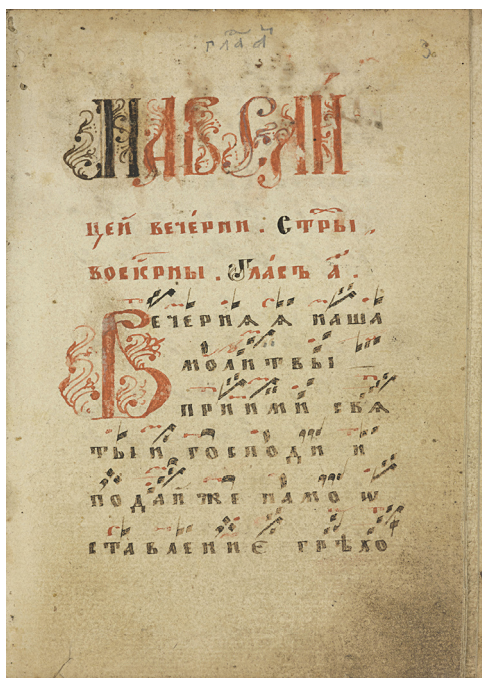 глаⷡ҇ а҃
НАВЕЛИ
цей вече́рни . Стⷯры
воскрⷭ҇ны . Гласъ а҃ .
Вечернѧѧ наша
молитвы
приими свѧ
тыи господи и
подаиже намо ѡ
ставление грѣхо